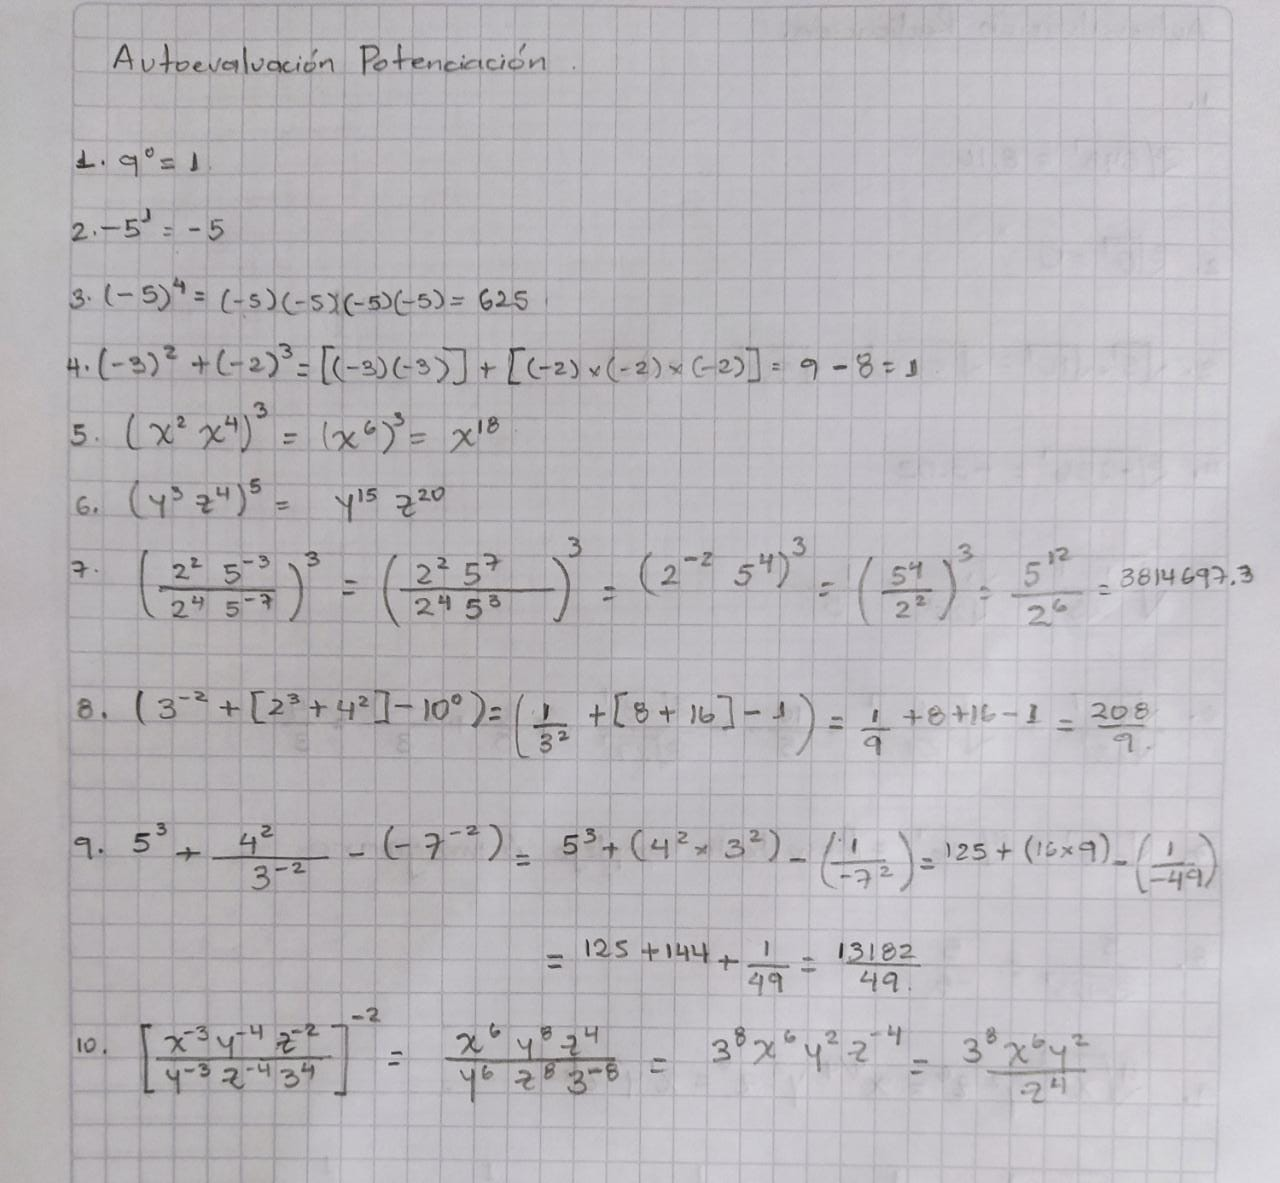 Autoevaluación Potenciación.
1. 9⁰ = 1.
2. -5¹ = -5
3. (-5)⁴ = (-5)(-5)(-5)(-5) = 625
4. (-3)² + (-2)³ = [(-3)(-3)] + [(-2)×(-2)×(-2)] = 9 - 8 = 1
5. (x² x⁴)³ = (x⁶)³ = x¹⁸
6. (y³ z⁴)⁵ = y¹⁵ z²⁰
7. (2² 5⁻³ / 2⁴ 5⁻⁷)³ = (2² 5⁷ / 2⁴ 5³)³ = (2⁻² 5⁴)³ = (5⁴ / 2²)³ = 5¹² / 2⁶ = 3814697.3
8. (3⁻² + [2³ + 4²] - 10⁰) = (1 / 3² + [8 + 16] - 1) = 1 / 9 + 8 + 16 - 1 = 208 / 9.
9. 5³ + 4² / 3⁻² - (-7⁻²) = 5³ + (4² × 3²) - (1 / -7²) = 125 + (16×9) - (1 / -49)
= 125 + 144 + 1 / 49 = 13182 / 49.
10. [x⁻³ y⁻⁴ z⁻² / y⁻³ z⁻⁴ 3⁴]⁻² = x⁶ y⁸ z⁴ / y⁶ z⁸ 3⁻⁸ = 3⁸ x⁶ y² z⁻⁴ = 3⁸ x⁶ y² / z⁴